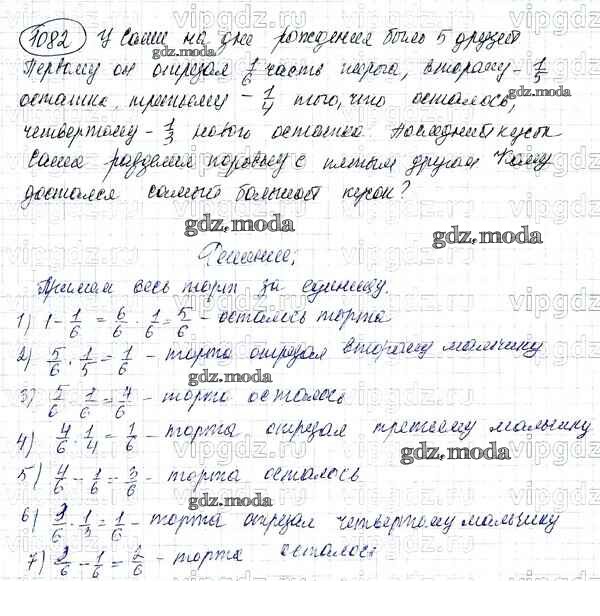 1082) У Саши на дне рождения было 5 друзей
Первому он отрезал 1/6 часть пирога, второму - 1/5
остатка, третьему - 1/4 того, что осталось,
четвертому - 1/3 нового остатка. Последний кусок
Саша разделил поровну с пятым другом Кому
достался самый больший кусок?
gdz.moda
gdz.moda
Решение:
Примем весь торт за единицу.
1) 1 - 1/6 = 6/6 · 1/6 = 5/6 - осталось торта
2) 5/6 · 1/5 = 1/6 - торта отрезал второму мальчику
gdz.moda
3) 5/6 1/6 = 4/6 - торта осталось
4) 4/6 · 1/4 = 1/6 - торты отрезал третьему мальчику
gdz.moda
5) 4/6 - 1/6 = 3/6 - торта осталось
gdz.moda
6) 3/6 · 1/3 = 1/6 - торты отрезал четвертому мальчику
7) 3/6 - 1/6 = 2/6 - торта осталось
gdz.moda
vipgdz.ru